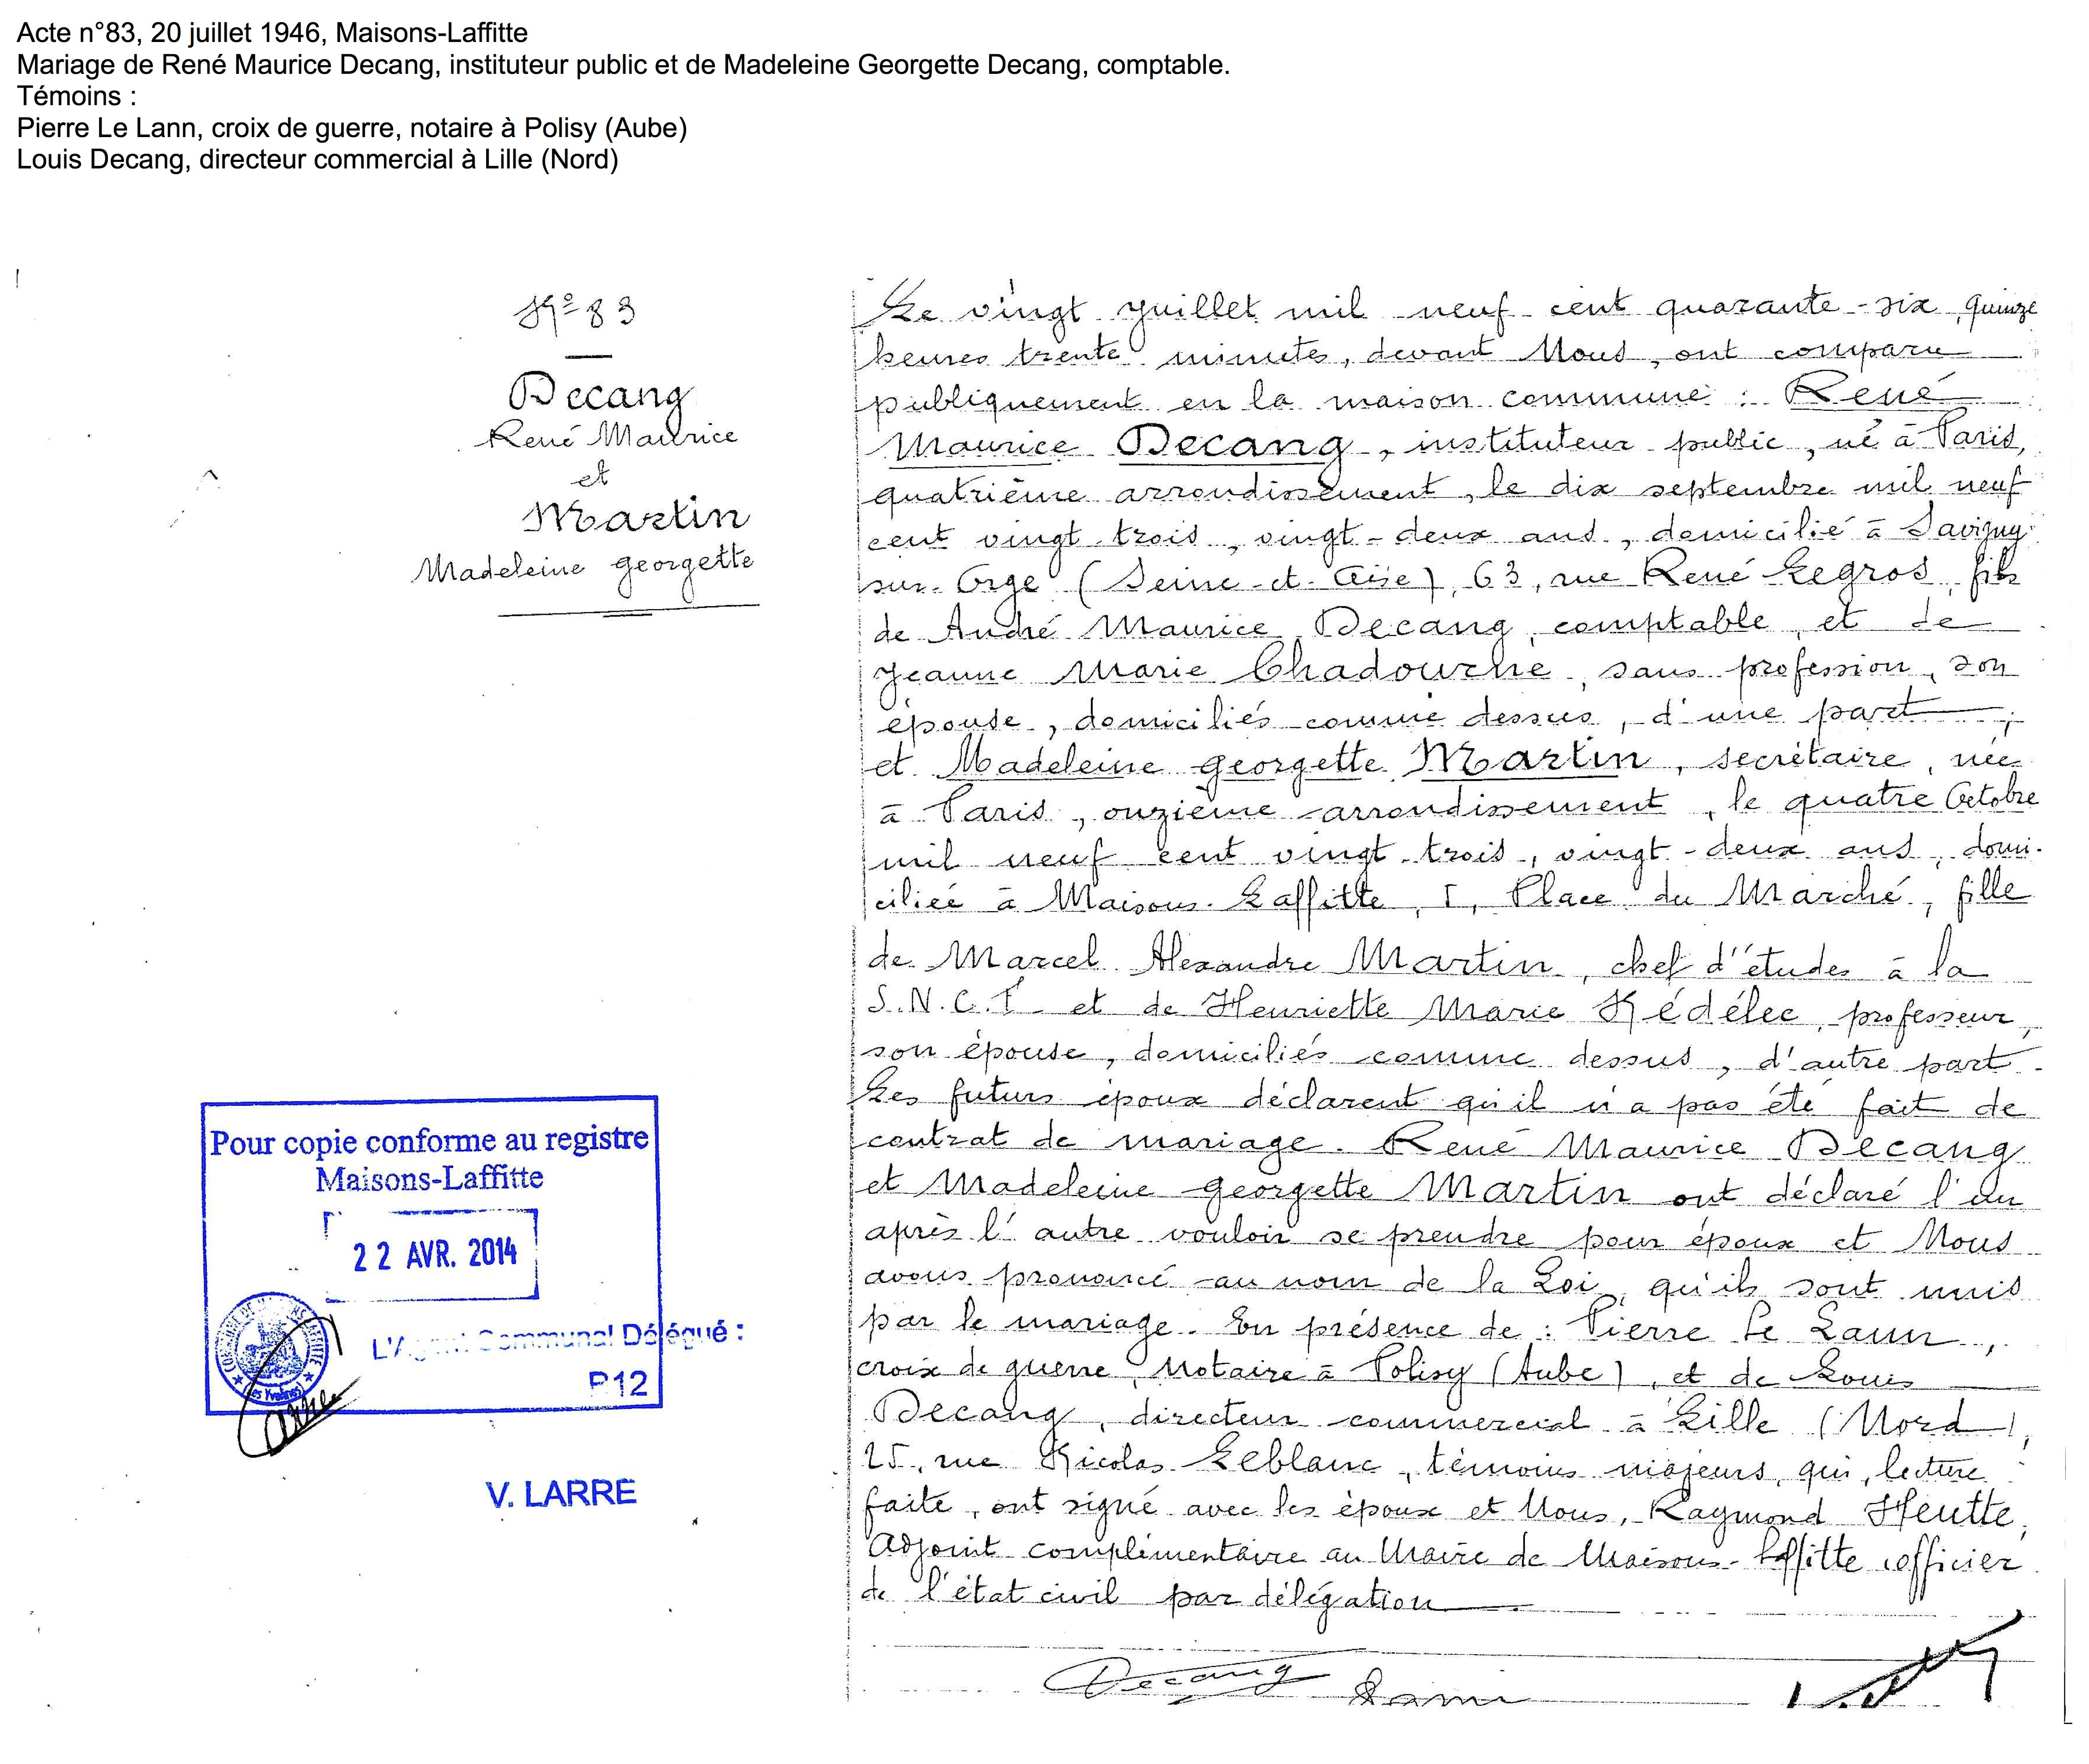 Acte n°83, 20 juillet 1946, Maisons-Laffitte
Mariage de René Maurice Decang, instituteur public et de Madeleine Georgette Decang, comptable.
Témoins :
Pierre Le Lann, croix de guerre, notaire à Polisy (Aube)
Louis Decang, directeur commercial à Lille (Nord)
Nº 83
Decang
René Maurice
et
Martin
Madeleine Georgette
Le vingt juillet mil neuf cent quarante-six, quinze
heures trente minutes, devant Nous, ont comparu
publiquement en la maison commune : René
Maurice Decang, instituteur public, né à Paris,
quatrième arrondissement, le dix septembre mil neuf
cent vingt trois, vingt-deux ans, domicilié à Savigny
sur-Orge (Seine-et-Oise), 63, rue René Legros, fils
de André Maurice Decang, comptable, et de
Jeanne Marie Chadourne, sans profession, son
épouse, domiciliés comme dessus, d'une part ;
et Madeleine Georgette Martin, secrétaire, née
à Paris, onzième arrondissement, le quatre Octobre
mil neuf cent vingt-trois, vingt-deux ans, domi-
ciliée à Maisons-Laffitte, 1, Place du Marché, fille
de Marcel Alexandre Martin, chef d'études à la
S.N.C.F. et de Henriette Marie Kédélec, professeur,
son épouse, domiciliés comme dessus, d'autre part.
Les futurs époux déclarent qu'il n'a pas été fait de
contrat de mariage. René Maurice Decang
et Madeleine Georgette Martin ont déclaré l'un
après l'autre vouloir se prendre pour époux et Nous
avons prononcé au nom de la Loi, qu'ils sont unis
par le mariage. En présence de : Pierre Le Lann,
croix de guerre, Notaire à Polisy (Aube), et de Louis
Decang, directeur commercial à Lille (Nord),
25, rue Nicolas Leblanc, témoins majeurs, qui, lecture
faite, ont signé avec les époux et Nous, Raymond Heutte,
Adjoint complémentaire au Maire de Maisons-Laffitte, officier
de l'état civil par délégation
Pour copie conforme au registre
Maisons-Laffitte
22 AVR. 2014
L'Agent Communal Délégué :
P12
(Les Yvelines)
V. LARRE
Decang